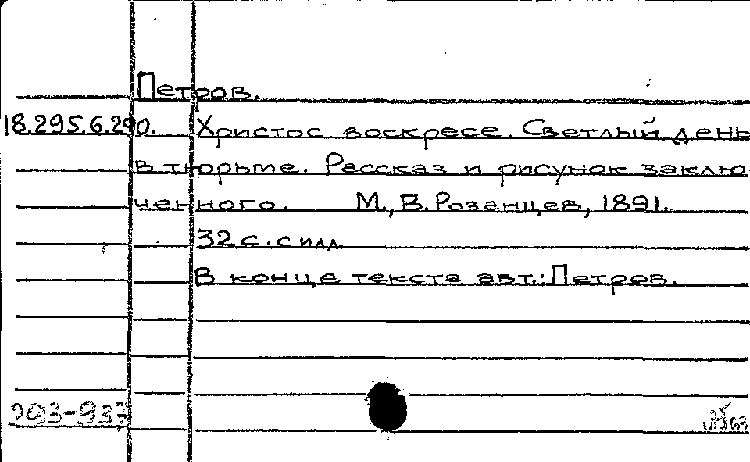 Петров.
18.295.6.290. Христос воскресе. Светлый день
в тюрьме. Рассказ и рисунок заклю
ченного. М., В. Розанцев, 1891.
32 с. с илл.
В конце текста авт.: Петров.